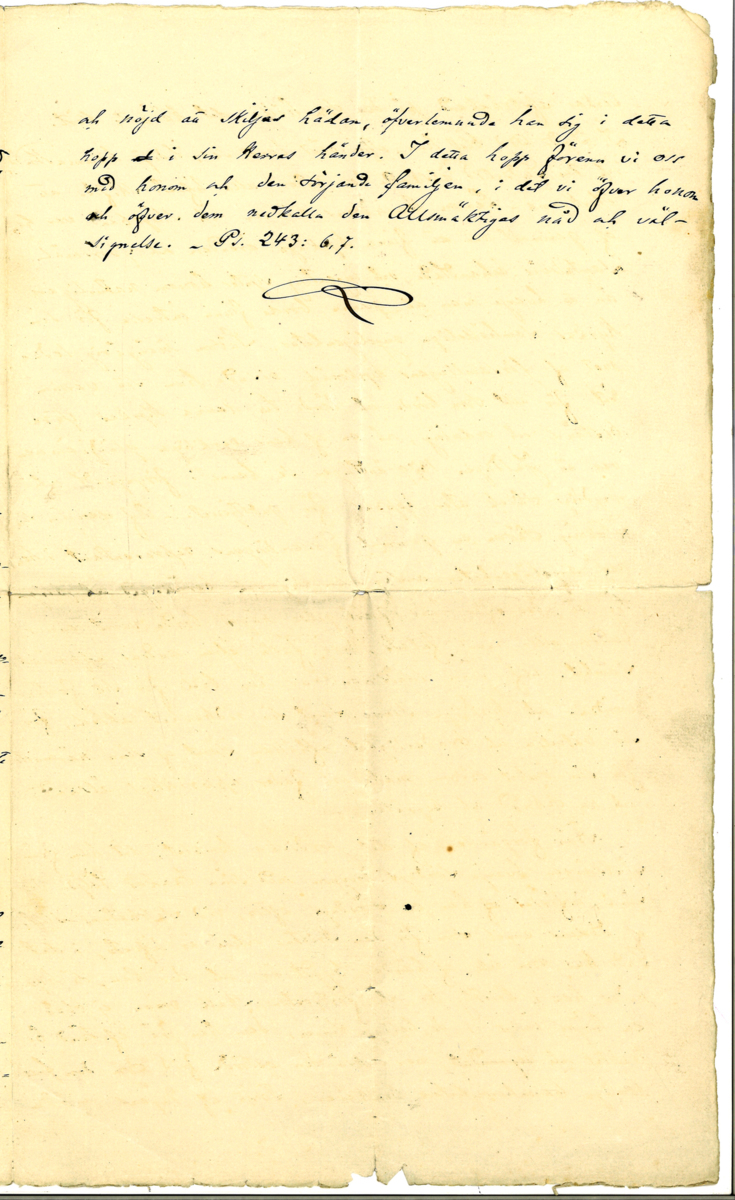 och nöjd att skiljas hädan, öfverlemnade han sig i detta
hopp i sin Herras händer. I detta hopp förena vi oss
med honom och den sörjande familjen, i det vi öfver honom
och öfver dem nedkalla den Allsmäktiges nåd och väl-
signelse. – Ps. 243: 6, 7.